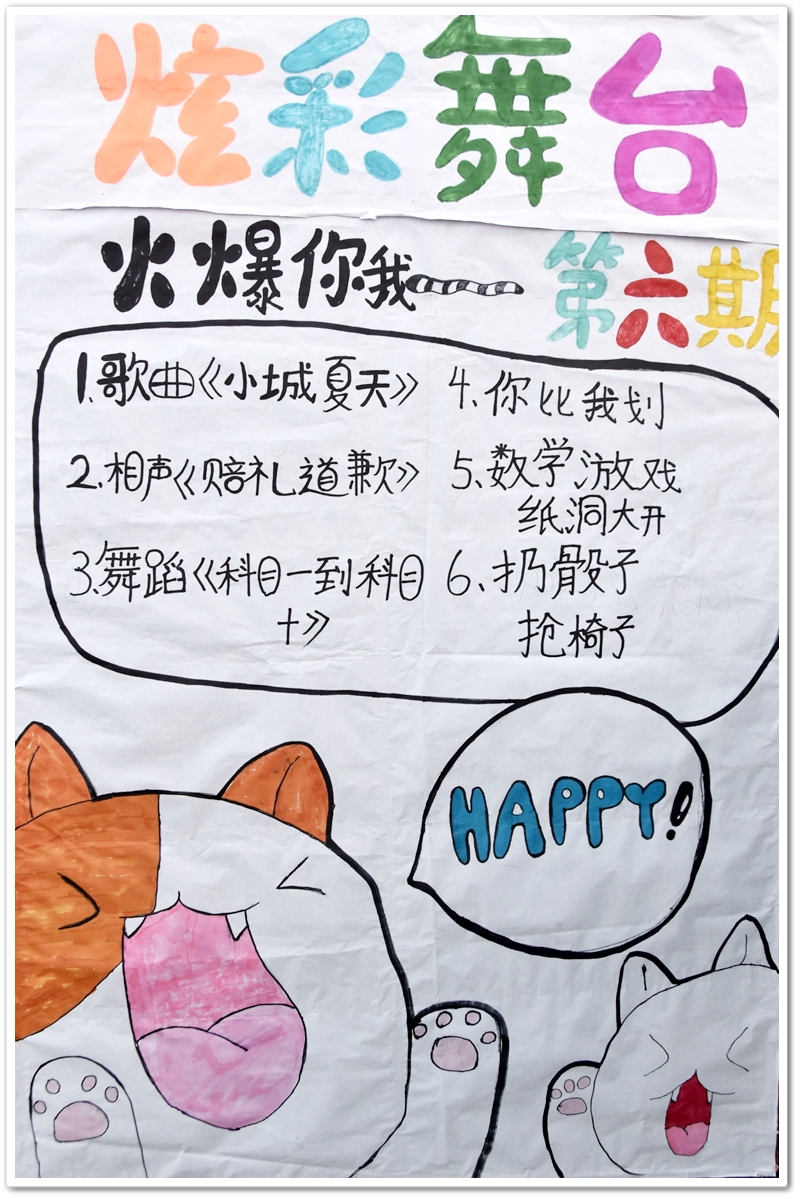 炫彩舞台
火爆你我
第六期
1.歌曲《小城夏天》
2.相声《赔礼道歉》
3.舞蹈《科目一到科目
十》
4、你比我划
5、数学游戏
纸洞大开
6、扔骰子
抢椅子
HAPPY!